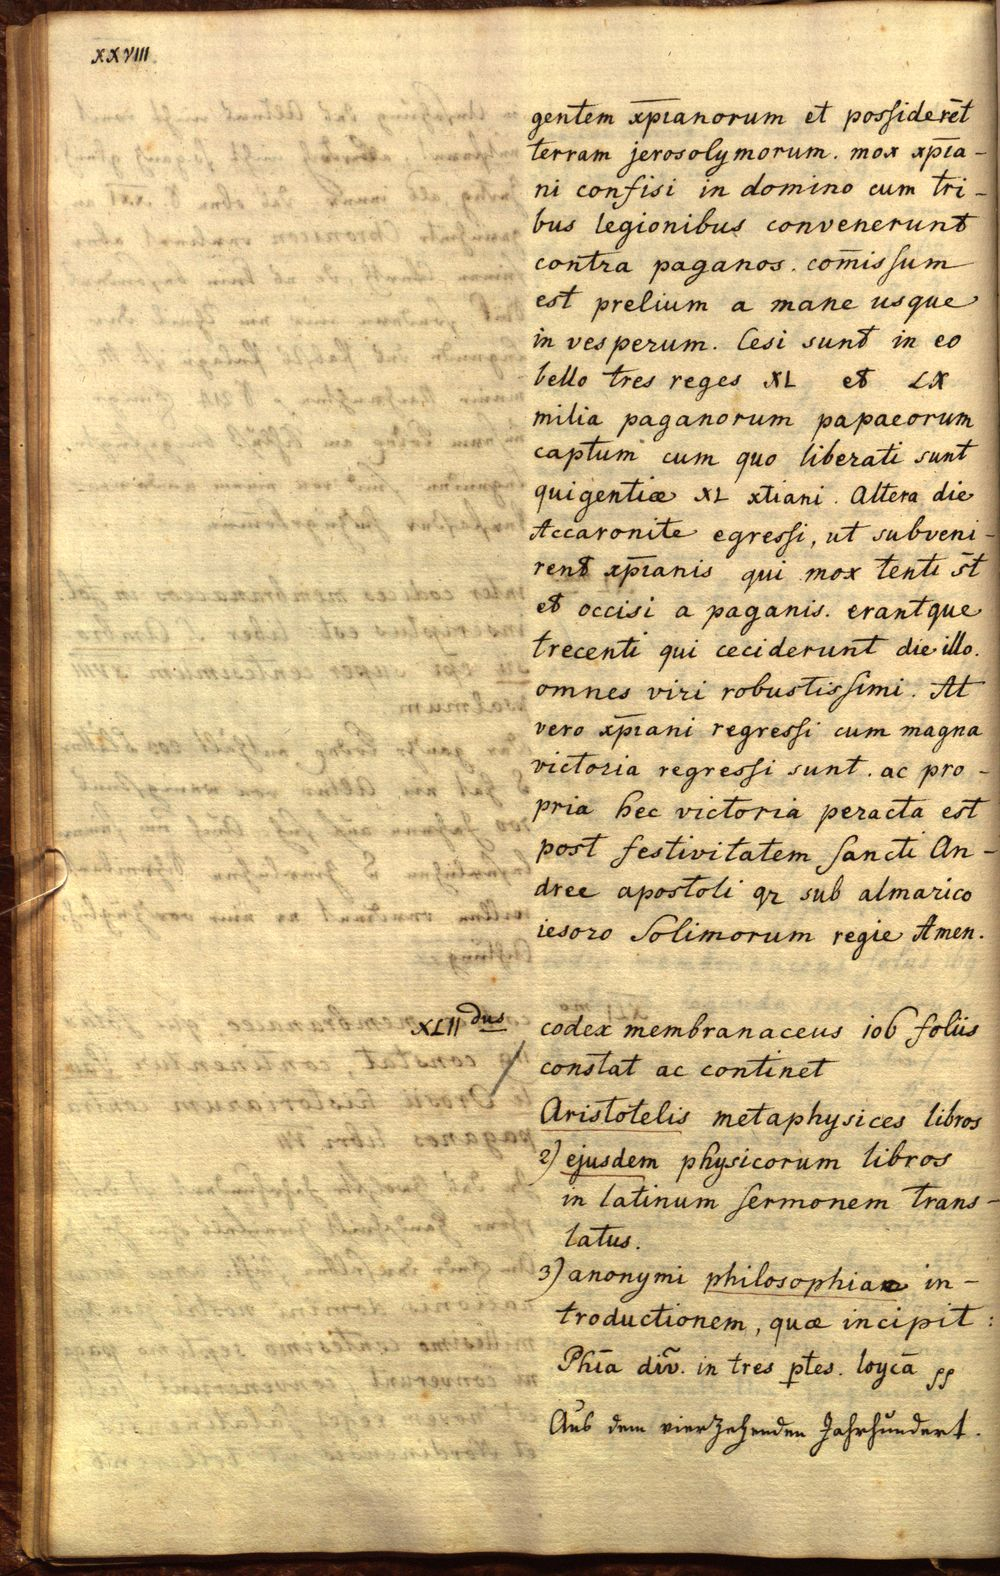 XXVIII
gentem xp̅ianorum et possider̅et
terram jerosolymorum. mox xp̅ia-
ni confisi in domino cum tri-
bus legionibus convenerunt
contra paganos. com̅issum
est prelium a mane usque
in vesperum. Cesi sunt in eo
bello tres reges XL et LX
milia paganorum papaeorum
captum cum quo liberati sunt
quigentiæ XL xtiani. Altera die
Accaronite egressi, ut subveni-
rent xp̅ianis qui mox tenti s̅t
et occisi a paganis. erantque
trecenti qui ceciderunt die illo.
omnes viri robustissimi. At
vero xp̅iani regressi cum magna
victoria regressi sunt. ac pro-
pria hec victoria peracta est
post festivitatem sancti An-
dree apostoli qz sub almarico
iesoro Solimorum regie Amen.
XLII dus codex membranaceus 106 foliis
constat ac continet
Aristotelis metaphysices libros
2) ejusdem physicorum libros
in latinum sermonem trans-
latus.
3) anonymi philosophiae in-
troductionem, quæ incipit:
Phi̅a div̅. in tres ptes. loyca̅ pp
Aus dem vierzehenden Jahrhundert.